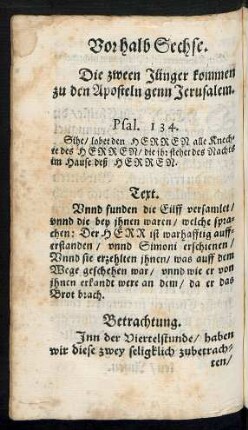 Vor halb Sechse.
Die zween Jünger kommen
zu den Aposteln genn Jerusalem.
Psal. 134.
Sihe/ lobet den HERREN alle Knech-
te des HERREN/ die ihr stehet des Nachts
im Hause deß HERREN.
Text.
Vnnd funden die Eilff versamlet/
vnnd die bey jhnen waren/ welche spra-
chen: Der HERR ist warhafftig auff-
erstanden/ vnnd Simoni erschienen/
Vnnd sie erzehlten jhnen/ was auff dem
Wege geschehen war/ vnnd wie er von
jhnen erkandt were an dem/ da er das
Brot brach.
Betrachtung.
Jnn der Viertelstunde/ haben
wir diese zwey seligklich zubetrach-
ten/